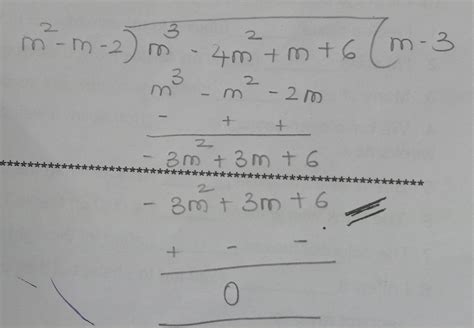 m² - m - 2) m³ - 4m² + m + 6 (m - 3
m³ - m² - 2m
- + +
- 3m² + 3m + 6
************************************************
- 3m² + 3m + 6
+ - -
0